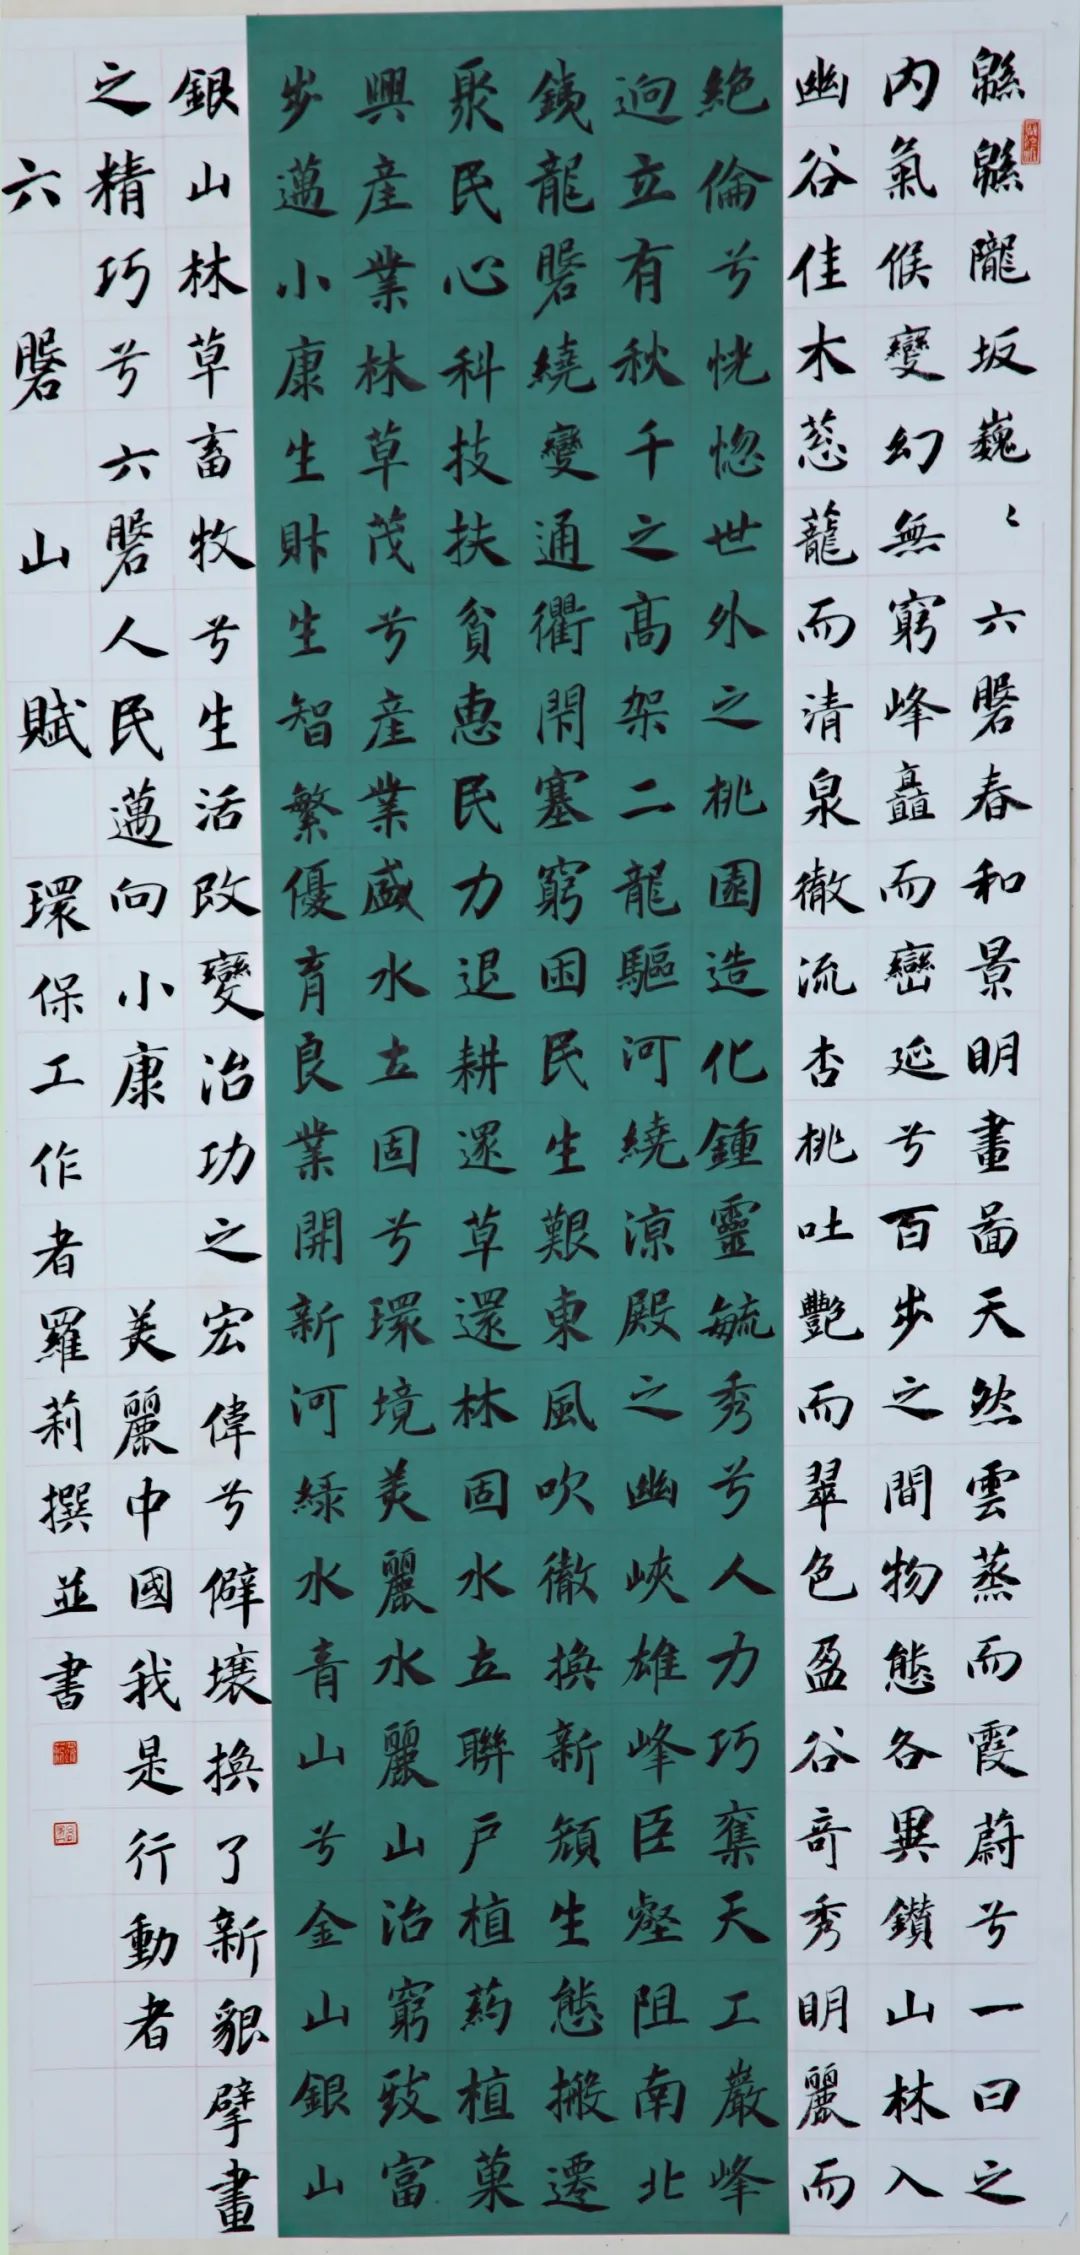 緜緜隴坂巍〻六磐春和景明畫啚天然雲蒸而霞蔚兮一日之
内氣候變幻無窮峰矗而巒延兮百步之間物態各異鑽山林入
幽谷佳木葱蘢而清泉徹流杏桃吐艷而翠色盈谷奇秀明麗而
絶倫兮恍惚世外之桃園造化鍾靈毓秀兮人力巧奪天工巖峰
迥立有秋千之高架二龍驅河繞凉殿之幽峽雄峰臣壑阻南北
鐵龍磐繞變通衢閉塞窮困民生艱東風吹徹换新顔生態搬遷
聚民心科技扶貧惠民力退耕還草還林固水土聯户植葯植菓
興産業林草茂兮産業盛水土固兮環境美麗水麗山治窮致富
步邁小康生財生智繁優育良業開新河緑水青山兮金山銀山
銀山林草畜牧兮生活改變治功之宏偉兮僻壤换了新貌擘畫
之精巧兮六磐人民邁向小康 美麗中國我是行動者
六磐山賦 環保工作者羅莉撰並書